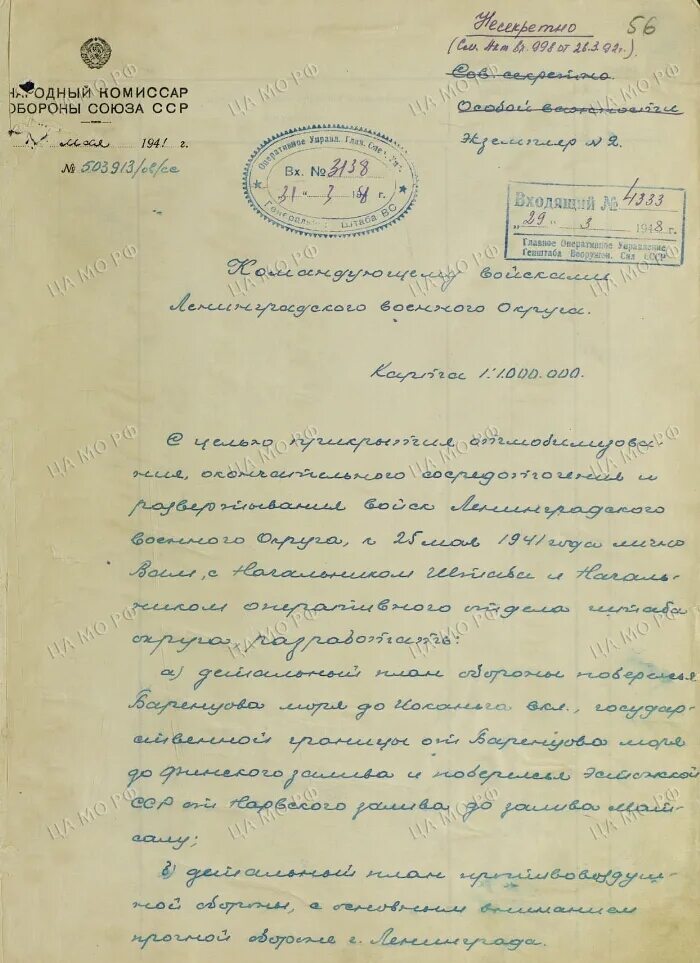 Несекретно
56
(См. Акт вх. 998 от 26.3.92г.)
Сов. секретно.
Особой важности
Экземпляр №2.
НАРОДНЫЙ КОМИССАР
ОБОРОНЫ СОЮЗА ССР
мая 1941 г.
№ 503913/ов/сс
Оперативное Управл. Глав.
Вх. № 3138
31 " 3
Генерального Штаба ВС
Входящий № 4333
„29 " 3 1948 г.
Главное Оперативное Управление
Генштаба Вооружен. Сил СССР
Командующему войсками
Ленинградского военного Округа.
Карта 1:1.000.000.
С целью прикрытия отмобилизова-
ния, окончательного сосредоточения и
развертывания войск Ленинградского
военного Округа, к 25 мая 1941 года лично
Вам, с Начальником Штаба и Началь-
ником оперативного отдела штаба
округа, разработать:
а) детальный план обороны побережья
Баренцова моря до Иоканьга вкл., государ-
ственной границы от Баренцова моря
до финского залива и побережья Эстонской
ССР от Нарвского залива до залива Мат-
салу;
б) детальный план противовоздуш-
ной обороны, с основным вниманием
прочной обороне г. Ленинграда.
ЦА МО РФ